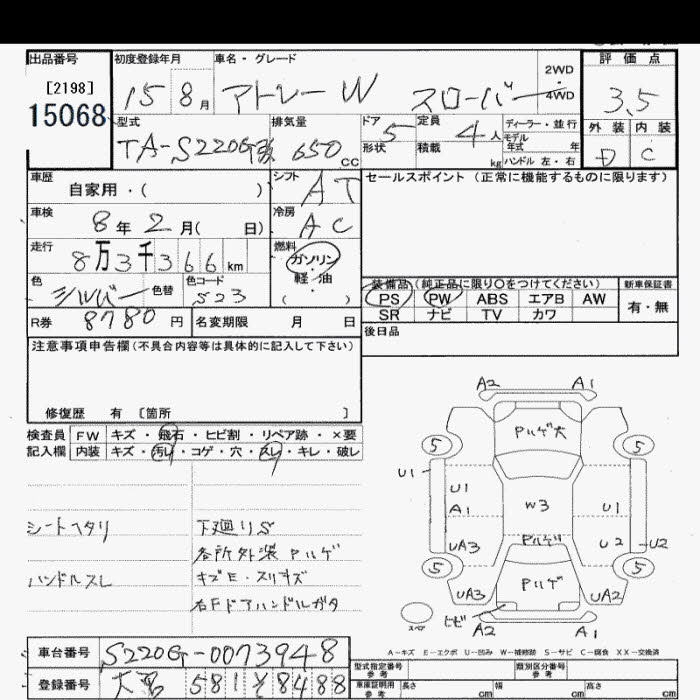 出品番号
[2198]
15068
初度登録年月
15 8月
車名・グレード
アトレーW スローパー
2WD
・
4WD
評価点
3.5
外装 内装
D C
型式
TA-S220G改
排気量
650cc
ドア 5
形状
定員 4人
積載 kg
ディーラー・並行
モデル年式 年
ハンドル 左・右
車歴
自家用・( )
シフト AT
セールスポイント(正常に機能するものに限ります)
車検
8年2月( 日)
冷房 AC
走行
8万3千366km
燃料
ガソリン
・
軽油
( )
色
シルバー
色替
色コード
S23
装備品(純正品に限り〇をつけてください)
新車保証書
PS PW ABS エアB AW
有・無
SR ナビ TV カワ
R券 8780円
名変期限 月 日
後日品
注意事項申告欄(不具合内容等は具体的に記入して下さい)
修復歴 有〔箇所 〕
検査員記入欄
FW キズ・飛石・ヒビ割・リペア跡・×要
内装 キズ・汚レ・コゲ・穴・スレ・キレ・破レ
シートヘタリ
ハンドルスレ
下廻りS
各所外装Pハゲ
キズE・スリキズ
右Fドアハンドルガタ
A2 A1
Pハゲ大
5 5
U1
U1
A1
W3
U1
UA3
Pハゲ
U2
U2
5 5
UA3
Pハゲ
UA2
スペア
ヒビ
A2 A1
A-キズ E-エクボ U-凹み W-補修跡 S-サビ C-腐食 XX-交換済
車台番号 S220G-0073948
登録番号 581 8488
型式指定番号
参考
類別区分番号
参考
車庫証明用
参考
長さ cm
幅 cm
高さ cm